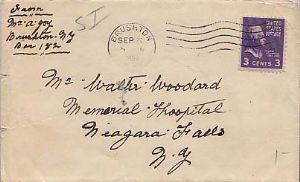 From
Brushton N.Y
Box 152
51
BRUSHTON
SEP
UNITED STATES
POSTAGE
3 CENTS 3
Mr Walter Woodard
Memorial Hospital
Niagara Falls
N.Y